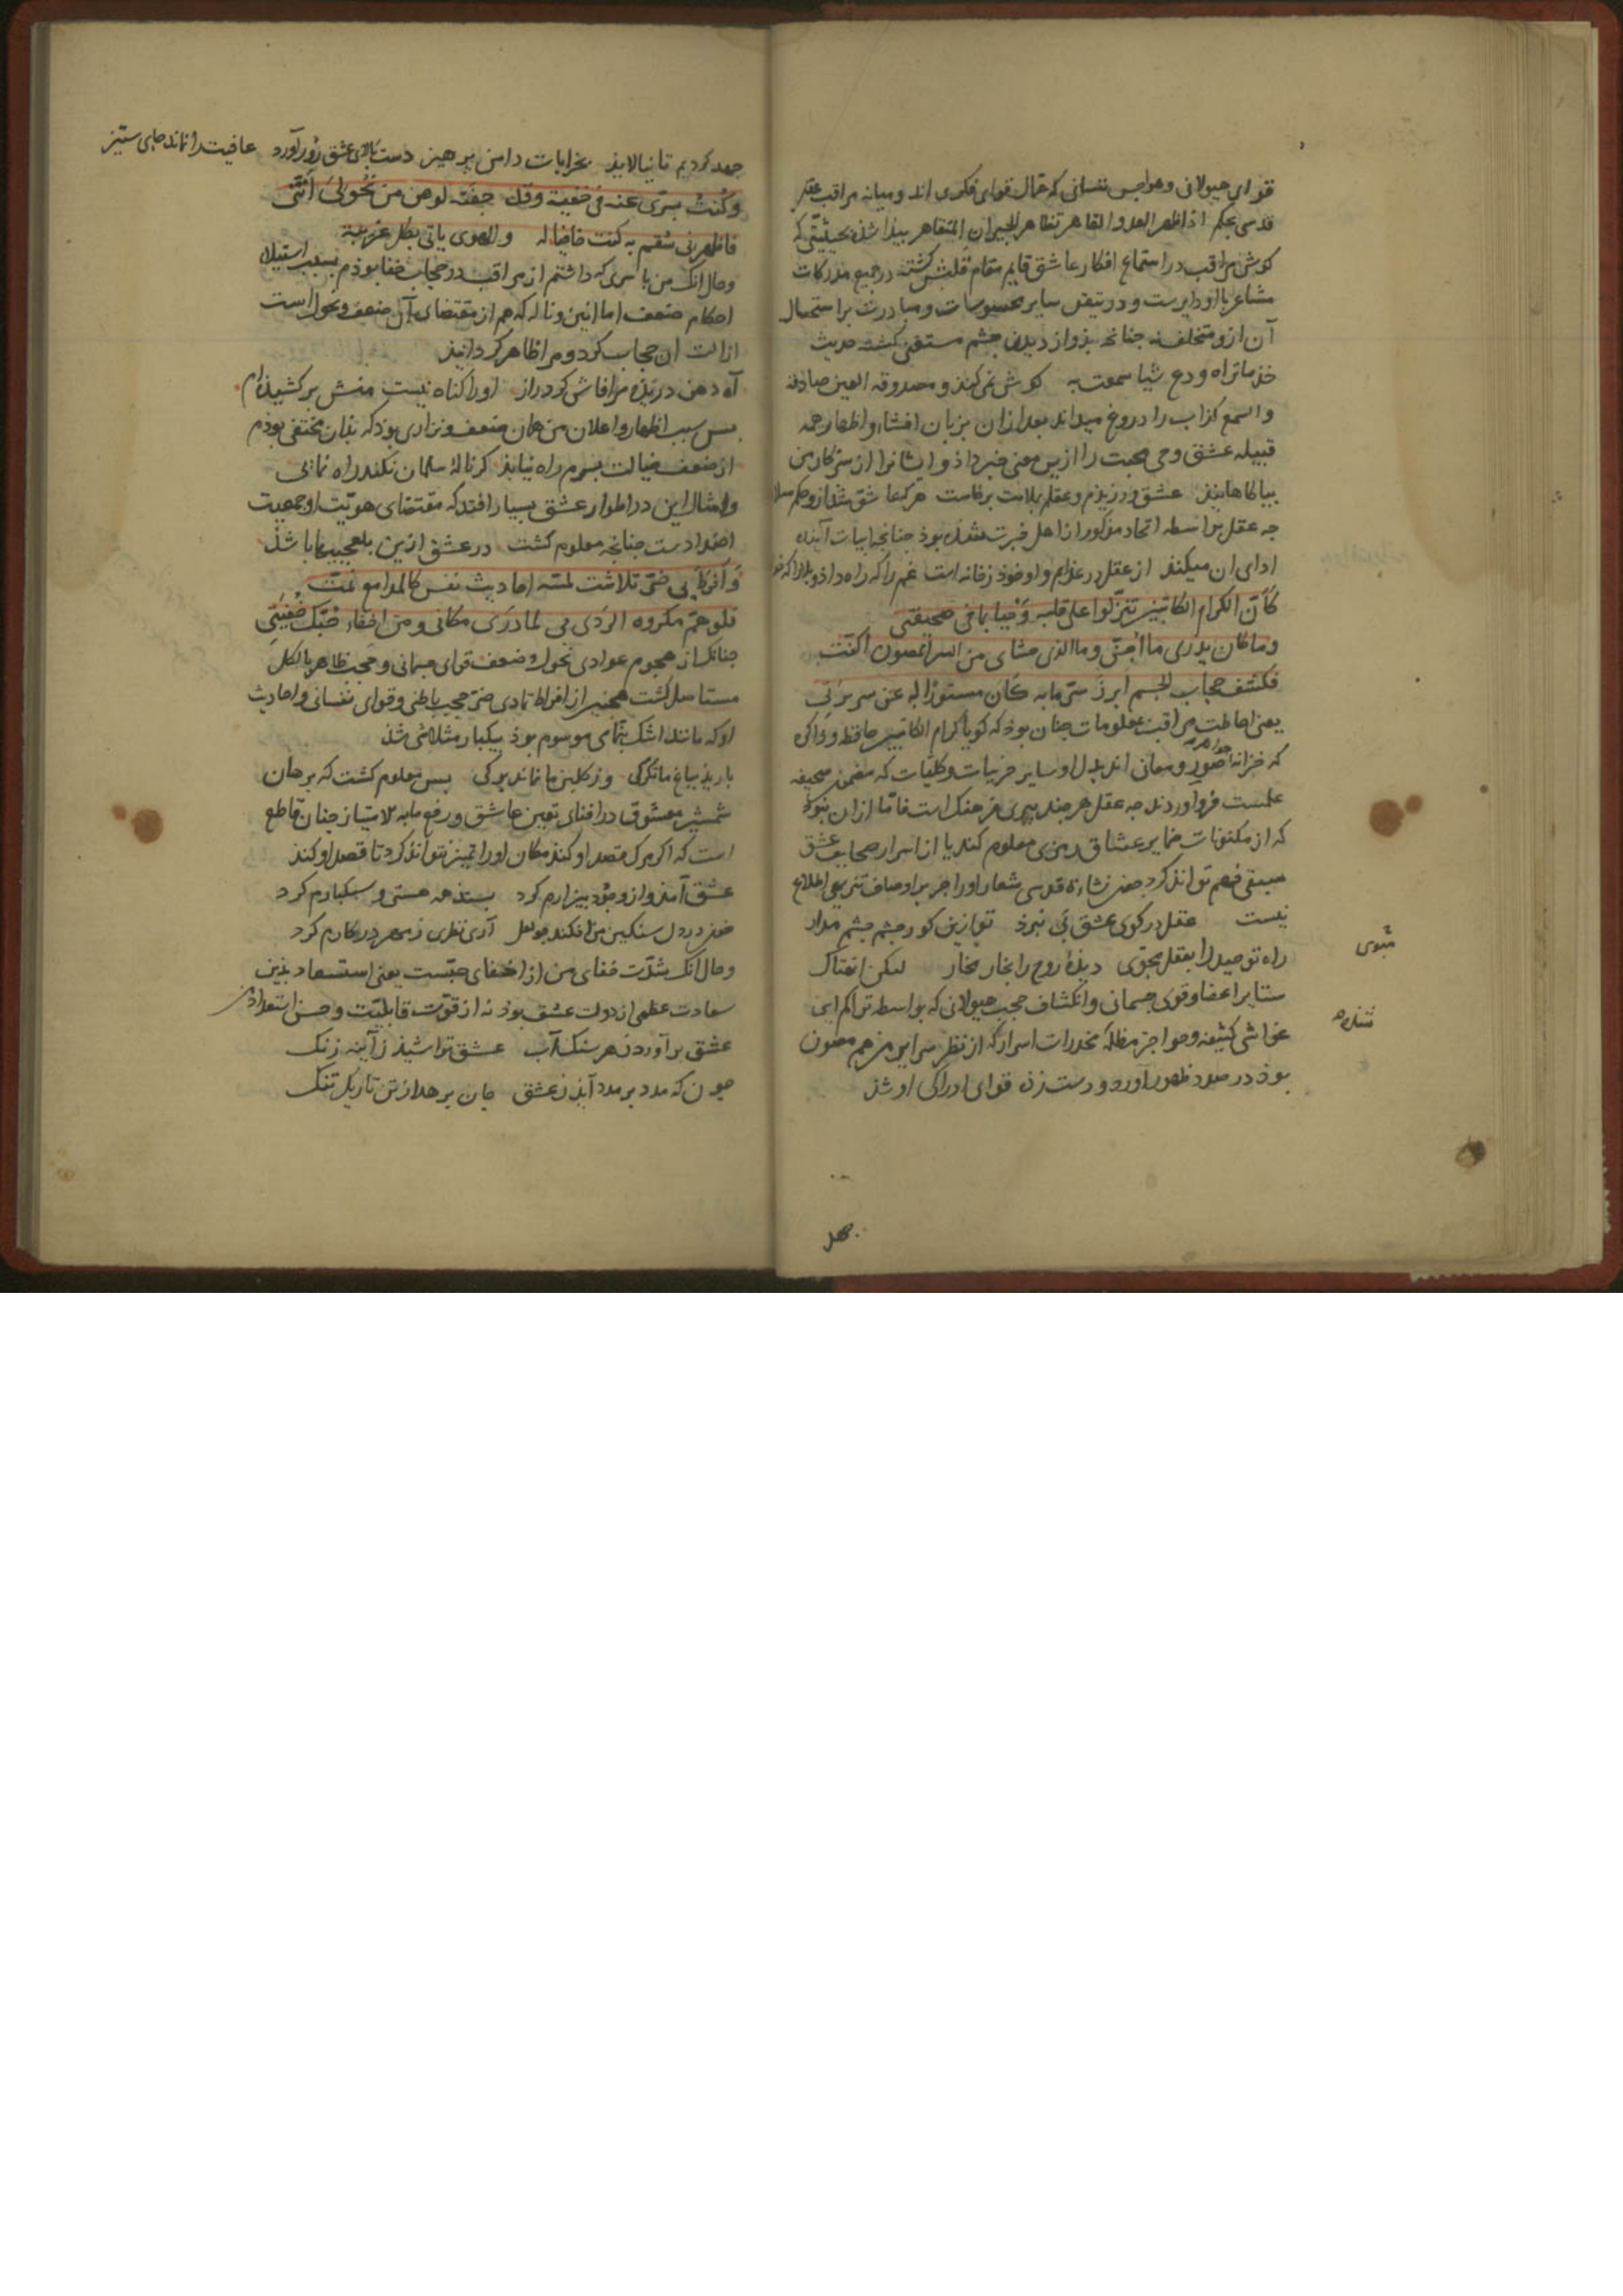 قوای هیولانی و هواجس نفسانی که عمال قوای فکری اند و میانه مراقب عقل
قدسی بحکم اذا ظهر العدو القاهر تظاهر الجیران المتقاهر بیدا شد بحیثیتی که
کوش مراقب در استماع افکار عاشق قایم مقام قلبش کشته در جمیع مدرکات
مشاعر با او دایرست و در تیقن سایر محسوسات و مبادرت بر استحصال
آن ازو متخلف نه جنانجه بذو از دیدن جشم مستغنی کشته حدیث
خذ ما تراه و دع شیا سمعت به کوش نمی کند و مصدوقه العین صادقه
و السمع کذاب را دروغ میداند بعد ازان بزبان افشاء و اظهار جمه
قبیله عشق و حی محبت را ازین معنی خبر داذ و ایشانرا از سر کار من
بیاکاهانید عشق ورزیذم و عقلم بملامت برخاست هر که عاشق شد ازو حکم سلا
جه عقل بواسطه اتحاد مذکور از اهل خبرت شده بوذ جنانجه ابیات آینده
ادای ان میکند از عقل در عذابم و او خود زمانه است غم را که راه داذ
کان الکرام الکاتبین تنزلوا علی قلبه وحیا بما فی صحیفتی
و ما کان یدری ما اجن و ما الذی حشای من السر المصون اکنت
فکشف حجاب الجسم ابرز سر ما به کان مستورا له عن سریرتی
یعنی احاطت مراقب بمعلومات جنان بوذ که کویا کرام الکاتبین حافظه و ذاکره
که خزانه جواهر صور و معانی اند بدل او سایر جزییات و کلیات که مضمن صحیفه
علمست فرو اوردند جه عقل هر جند پیری فرهنک است فاما ازان نبوذ
که از مکنونات ضمایر عشاق رمزی معلوم کند یا از اسرار صحایف عشق
سبقی فهم تواند کرد جه نشاءة قدسی شعار او را جز بر اوصاف تنزیهی اطلاع
نیست عقل در کوی عشق پی نبرذ تو ازین کور جشم جشم مدار
مثنوی
راه توحید را بعقل مجوی دیدۀ روح را بخار مخار لیکن انهتاک
ستایر اعضا و قوی جسمانی و انکشاف حجب هیولانی که بواسطه تراکم این
غواشی کثیفه و حواجز مظلمه مخدرات اسرار که از نظر سرایر من هم مصون
بوذ در صدد ظهور آورد و دست زده قوای ادراکی او شذ
جهد کردیم تا نیالاید بخرابات دامن پرهیز دست بالای عشق زور آورد عافیت را نماند جای ستیز
و کنت بسری عنه فی خفیة و قد خفته لوهن من نحولی انتی
فاظهرنی سقم به کنت خافیا له و الهوی یاتی بکل غریبة
و حال انک من با سری که داشتم از مراقب در حجاب خفا بوذم بسبب استیلای
احکام ضعف اما انین و ناله که هم از مقتضای آن ضعف و نحول است
ازالت ان حجاب کرد و مرا ظاهر کردانید
آه دهن دریذه مرا فاش کرد راز او را کناه نیست منش بر کشیده ام
بس سبب اظهار و اعلان من همان ضعف و نزاری بوذ که بذان مختفی بوذم
از ضعف خیالت بسرم راه نیابذ کر نالۀ سلمان نکند راه نمائی
و امثال این در اطوار عشق بسیار افتد که مقتضای هویت او جمعیت
اضدادست جنانجه معلوم کشت در عشق ازین بلعجبیها باشذ
و افرط بی ضر تلاشت لمسه احادیث نفس کالمدامع نمت
فلو هم مکروه الردی بی لما دری مکانی و من اخفاء حبک خفیتی
جنانک از هجوم عوادی نحول و ضعف قوای جسمانی و حجب ظاهر بالکل
مستاصل کشت همجنین از افراط تمادی ضر حجب باطنی و قوای نفسانی و احادیث
او که مانند اشک بنمامی موسوم بوذ بیکبار متلاشی شذ
باریذ بباغ ما تکرکی وز کلبن ما نماند برکی بس معلوم کشت که برهان
شمشیر معشوق در افنای تعین عاشق و رفع مابه الامتیاز جنان قاطع
است که اکر مرک قصد او کند مکان او را تمیز نتواند کرد تا قصد او کند
عشق آمذ و از وجوذ بیزارم کرد بستد همه هستی و سبکبارم کرد
و حال انک شدت خفای من از اخفای حبست یعنی استسعاد بذین
سعادت عظمی از دولت عشق بوذ نه از قوت قابلیت و حسن استعداد من
عشق بر آورد ز هر سنک آب عشق تراشیذ ز آینه زنک
جون که مدد بر مدد آیذ ز عشق جان برهد از تن تاریک تنک